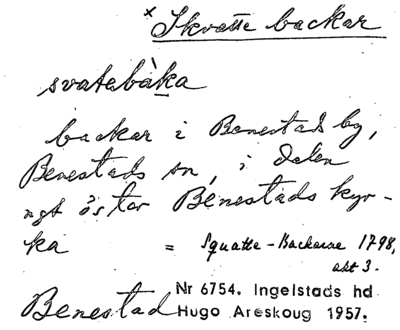 × Skvatte backar
svatebàka
backar i Benestads by,
Benestads sn, i dalen
ngt öster Benestads kyr-
ka = Squatte-Backarne 1798,
akt 3.
Benestad Nr 6754. Ingelstads hd
Hugo Areskoug 1957.